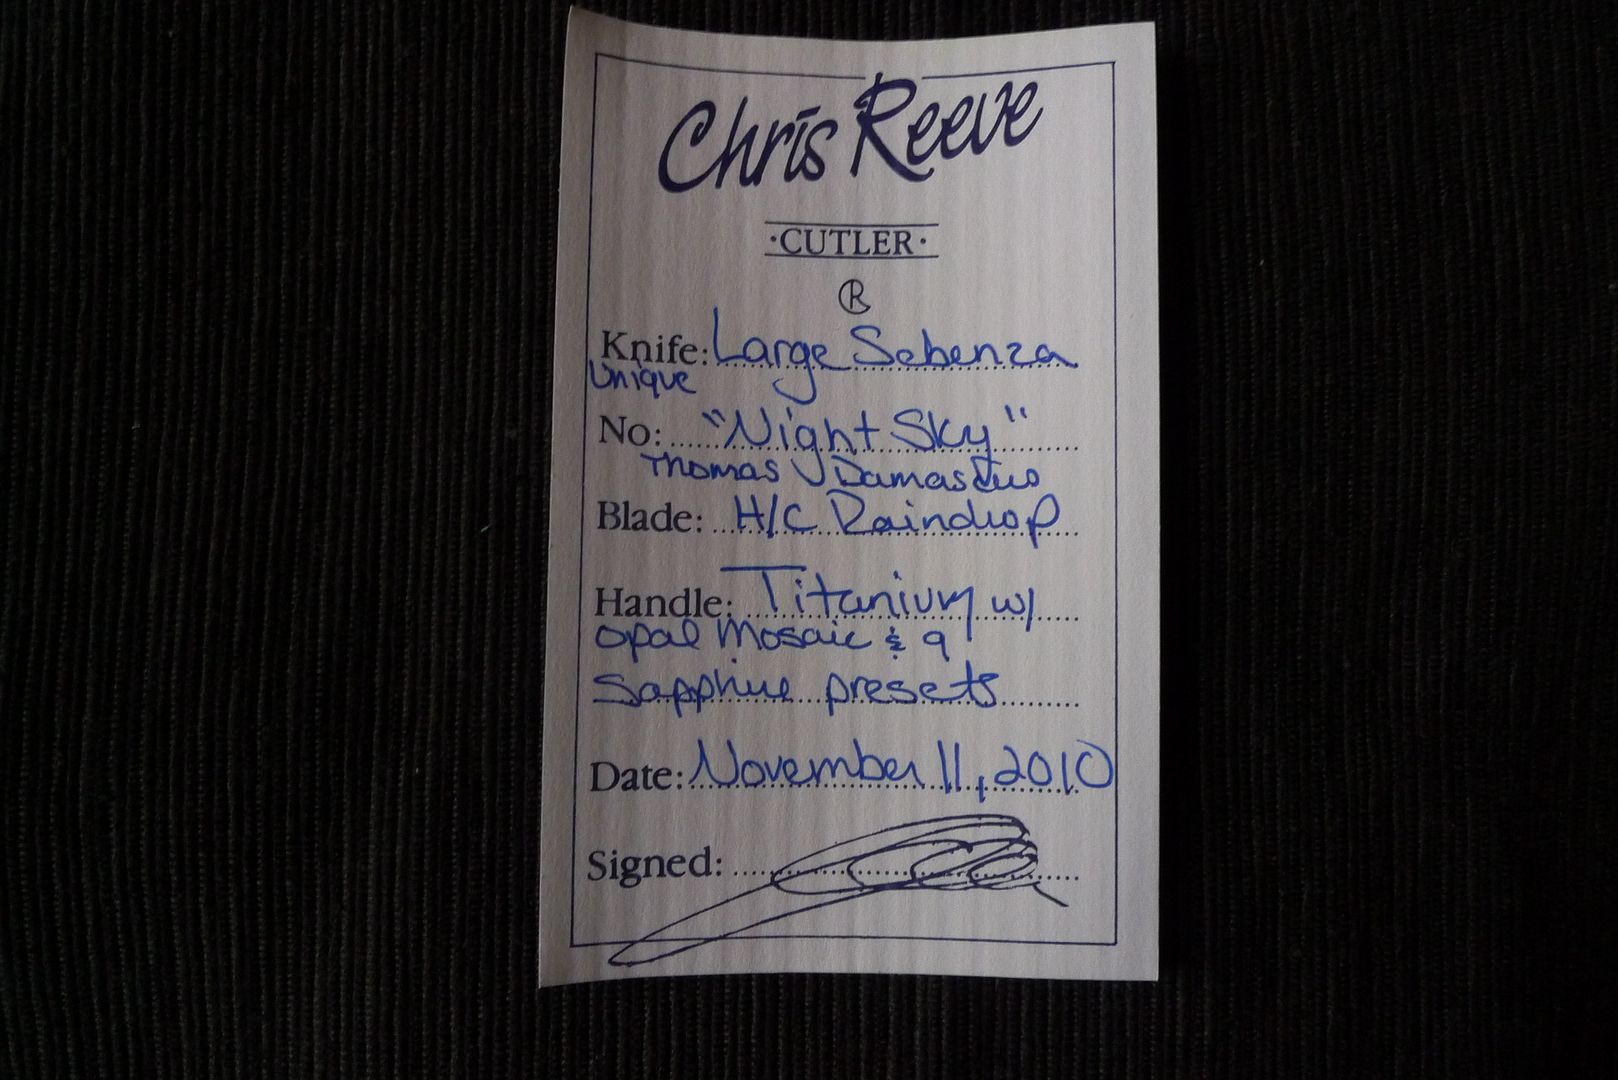 Chris Reeve
·CUTLER·
®
Knife: Large Sebenza
Unique
No: "Night Sky"
Thomas Damascus
Blade: H/C Raindrop
Handle: Titanium w/
opal Mosaic & 9
Sapphire presets
Date: November 11, 2010
Signed: